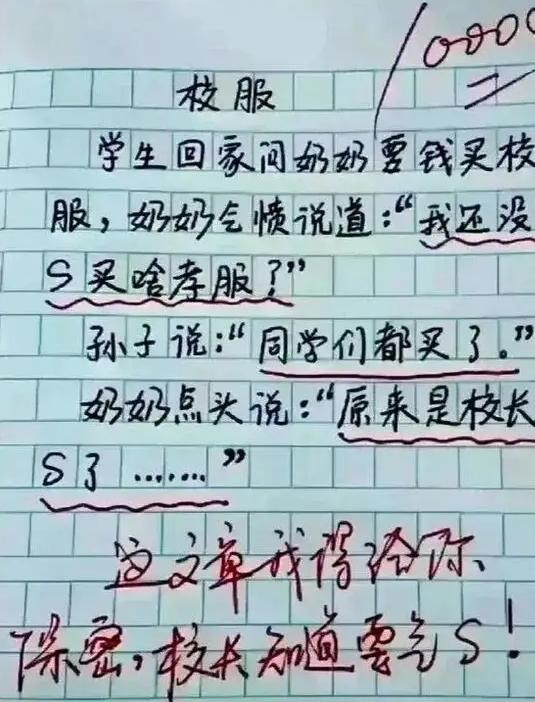 10000
校服
学生回家问奶奶要钱买校
服，奶奶气愤说道：“我还没
S买啥孝服？”
孙子说：“同学们都买了。”
奶奶点头说：“原来是校长
S了……”
这文章我得给你
保密，校长知道要气S！